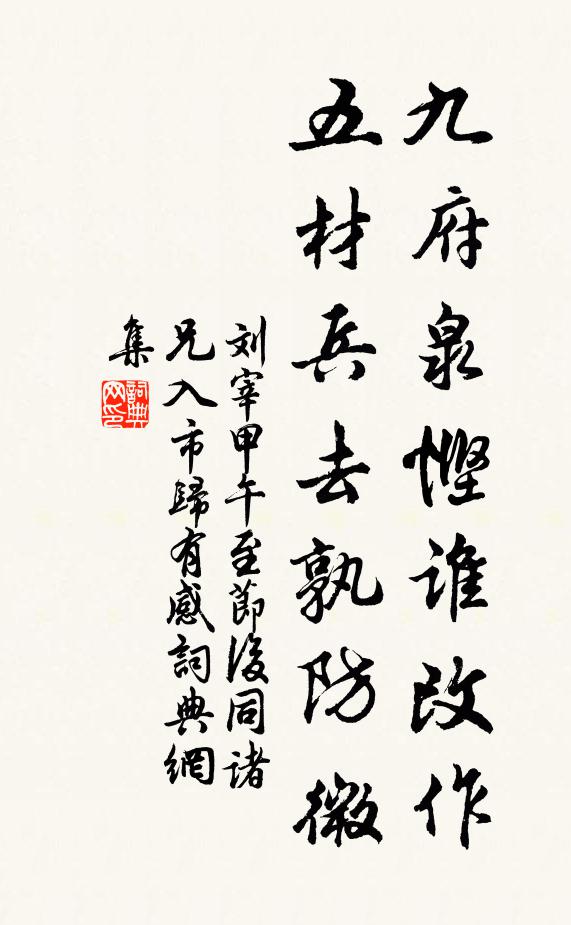 九府泉慳谁改作
五材兵去孰防微
刘宰甲午至節後同诸
兄入市歸有感詞典網
集
詞典
网印